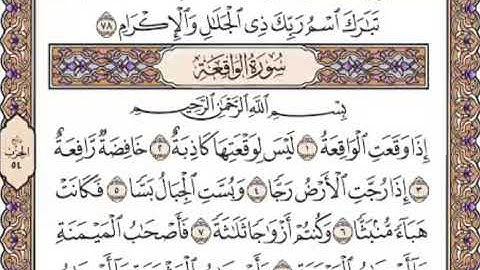 تَبَٰرَكَ ٱسْمُ رَبِّكَ ذِى ٱلْجَلَٰلِ وَٱلْإِكْرَامِ ٧٨
سُورَةُ الوَاقِعَة
بِسْمِ ٱللَّهِ ٱلرَّحْمَٰنِ ٱلرَّحِيمِ
إِذَا وَقَعَتِ ٱلْوَاقِعَةُ ١ لَيْسَ لِوَقْعَتِهَا كَاذِبَةٌ ٢ خَافِضَةٌ رَّافِعَةٌ
٣ إِذَا رُجَّتِ ٱلْأَرْضُ رَجًّا ٤ وَبُسَّتِ ٱلْجِبَالُ بَسًّا ٥ فَكَانَتْ
هَبَآءً مُّنۢبَثًّا ٦ وَكُنتُمْ أَزْوَٰجًا ثَلَٰثَةً ٧ فَأَصْحَٰبُ ٱلْمَيْمَنَةِ
الحِزْب
٥٤